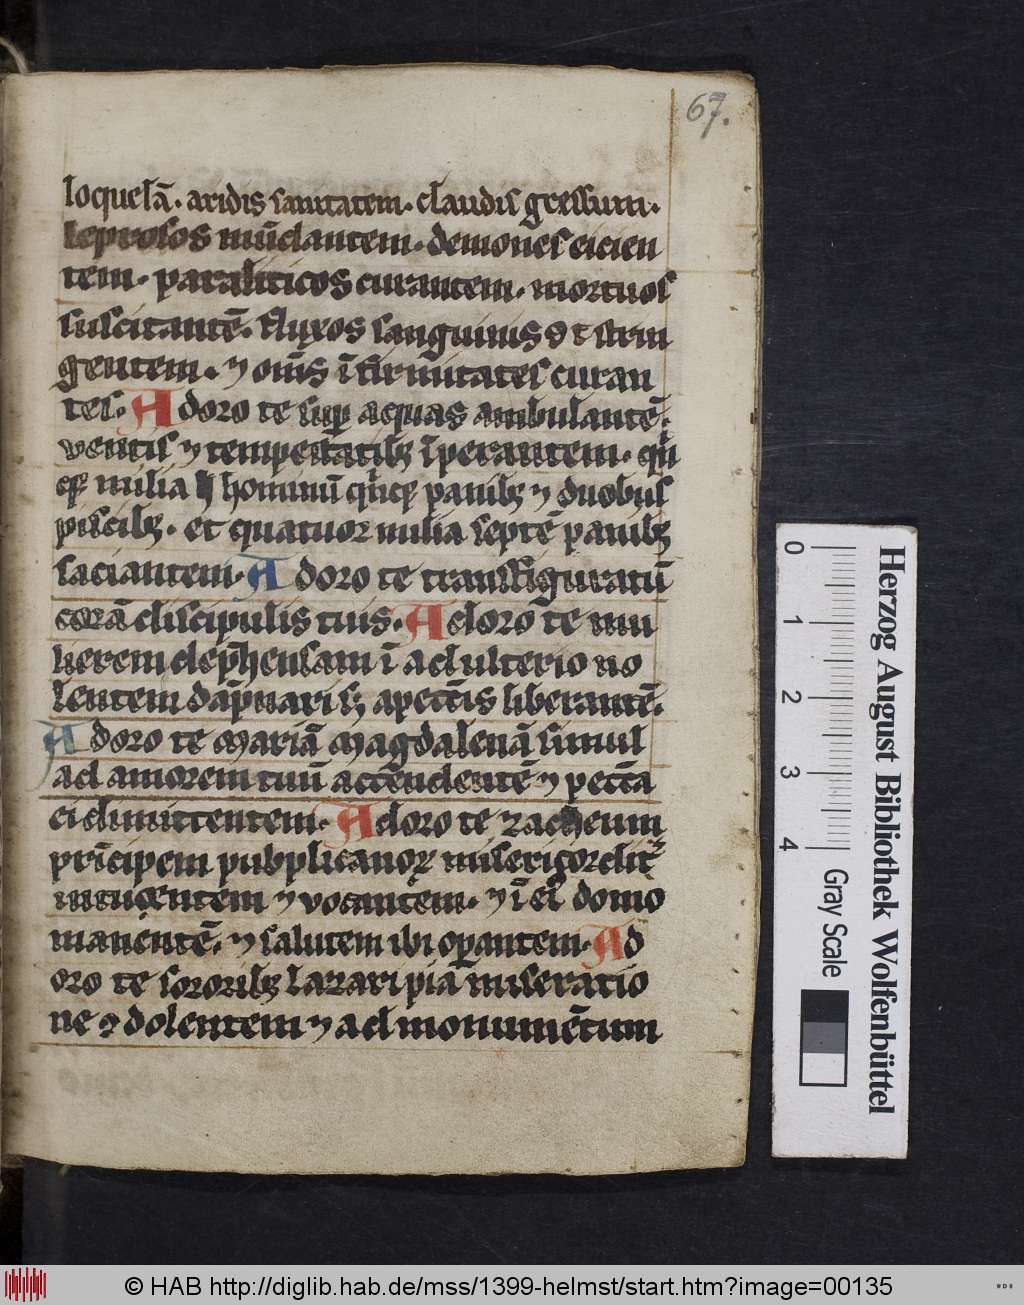 67.
loquelā. aridis sanitatem. claudis gressum.
leprosos mūdantem. demones eicien
tem. paraliticos curantem. mortuos
suscitantē. fluxos sanguinis
gentem. ⁊ om̄s īfirmitates curan
tes. Adoro te suꝑ acquas ambulantē.
ventis ⁊ tempestatibꝫ īperantem.
milia h hominū panibꝫ ⁊ duobus
piscibꝫ. et quatuor milia septē panibꝫ
saciantem. Adoro te transfiguratū
corā discipulis tuis. Adoro te mu
lierem dep̄hensam ī adulterio no
lentem dāpnari sꝫ a pecc̄tis liberantē.
Adoro te mariā magdalenā simul
ad amorem tuū accēdentē ⁊ pecc̄ta
ei dimittentem. Adoro te zacheum
prīcipem pubplicanoꝝ misericordit᷑
intuentem ⁊ vocantem. ⁊ ī ei᷒ domo
manentē. ⁊ salutem ibi oꝑantem. Ad
oro te sororibꝫ lazari piā miseratio
ne ꝯdolentem ⁊ ad monumētum
Herzog August Bibliothek Wolfenbüttel
0 1 2 3 4
Gray Scale
© HAB http://diglib.hab.de/mss/1399-helmst/start.htm?image=00135